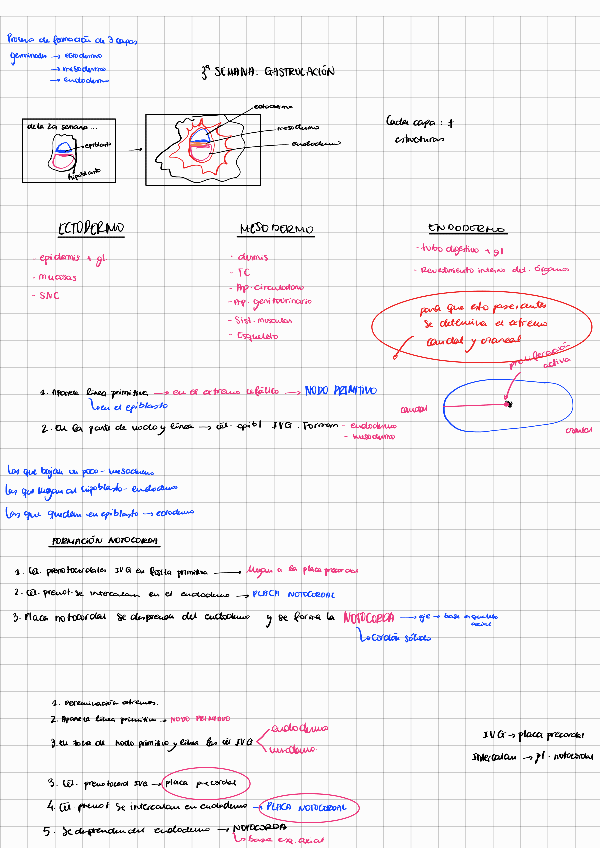 Proceso de formación de 3 capas
germinales → ectodermo
→ mesodermo
→ endodermo
3ª SEMANA: GASTRULACIÓN
de la 2a semana...
epiblasto
hipoblasto
ectodermo
mesodermo
endodermo
Cada capa: ≠
estructuras
ECTODERMO
- epidermis + gl
- mucosas
- SNC
MESODERMO
- dermis
- TC
- Ap. circulatorio
- Ap. genitourinario
- Sist. muscular
- Esqueleto
ENDODERMO
- tubo digestivo + gl
- Revestimiento interno del. órganos
para que esto pase, antes
se determina el extremo
caudal y craneal
proliferación
activa
caudal
craneal
1. Aparece línea primitiva → en el extremo cefálico → NODO PRIMITIVO
↳ en el epiblasto
2. En la parte de nodo y línea → cél. epibl IVG. Forman - endodermo
- mesodermo
Las que bajan un poco - mesodermo
Las que llegan al hipoblasto - endodermo
Las que quedan en epiblasto → ectodermo
FORMACIÓN NOTOCORDA
1. Cél. prenotocordales IVG en fosita primitiva → llegan a la placa precordal
2. Cél. prenot. se intercalan en el endodermo → PLACA NOTOCORDAL
3. Placa notocordal se desprende del endodermo y se forma la NOTOCORDA → eje → base esqueleto
axial
↳ Cordón sólido
1. Determinación extremos.
2. Aparece línea primitiva → NODO PRIMITIVO
3. En zona de nodo primitivo y línea las cél IVG
endodermo
mesodermo
3. Cél. prenotocord IVG → placa precordal
4. Cél prenot se intercalan en endodermo → PLACA NOTOCORDAL
5. Se desprenden del endodermo → NOTOCORDA
↳ base esq. axial
IVG → placa precordal
Intercalan → pl. notocordal